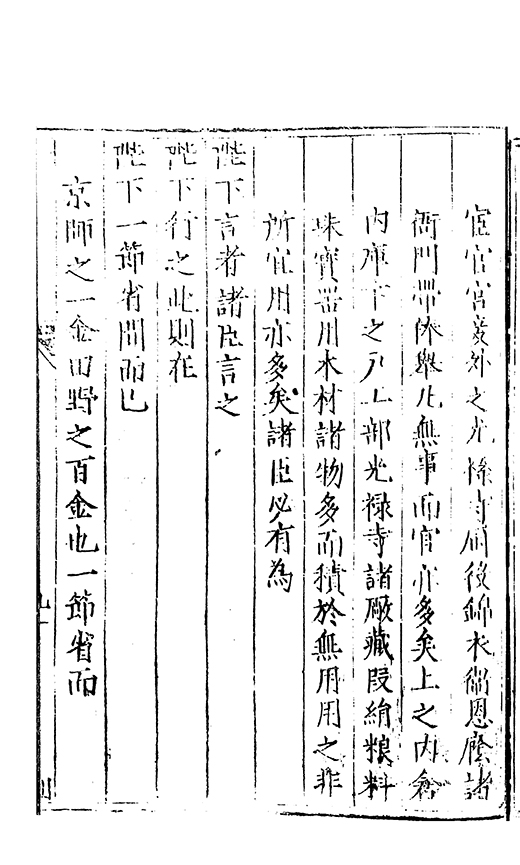 宦官宮妾外之光祿寺厨役錦衣衛恩廕諸
衙門帶俸舉凡無事而官亦多矣上之内倉
内庫下之戶工部光禄寺諸厰藏段絹粮料
珠寶器用木材諸物多而積於無用用之非
所宜用亦多矣諸臣必有為
陛下言者諸臣言之
陛下行之此則在
陛下一節省間而已
京師之一金田野之百金也一節省而